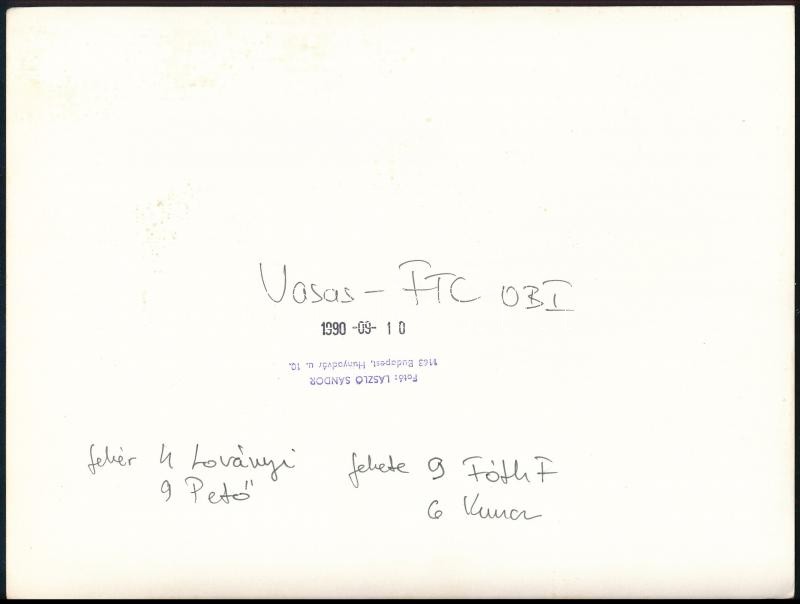 Vasas - FTC OB I
1990 -09- 10
Fotó: LÁSZLÓ SÁNDOR
1163 Budapest, Hunyadvár u. 10.
fehér 4 Loványi
9 Pető
fekete 9 Fóth F
6 Kuncz